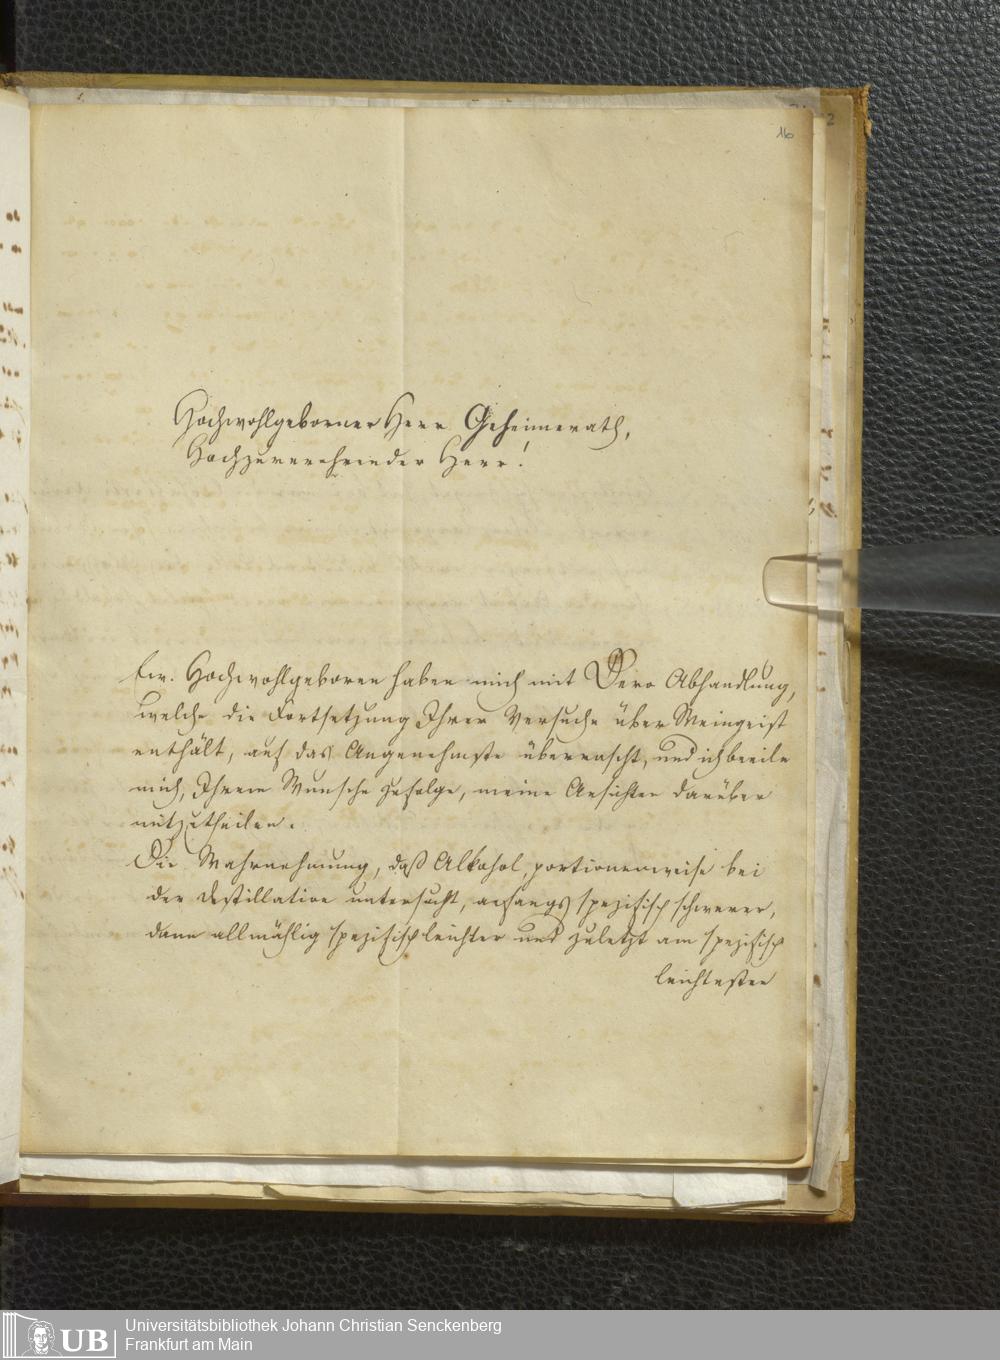 16
2
Hochwohlgeborner Herr Geheimerath,
Hochzuverehrender Herr!
Ew. Hochwohlgeboren haben mich mit Dero Abhandlung,
welche die Fortsetzung Ihrer Versuche über Weingeist
enthält, auf das Angenehmste überrascht, und ich beeile
mich, Ihrem Wunsche zufolge, meine Ansichten darüber
mitzutheilen.
Die Wahrnehmung, daß Alkohol, portionenweise bei
der Destillation untersucht, anfangs spezifisch schwerer,
dann allmählig spezifisch leichter und zuletzt am spezifisch
leichtesten
UB
Universitätsbibliothek Johann Christian Senckenberg
Frankfurt am Main